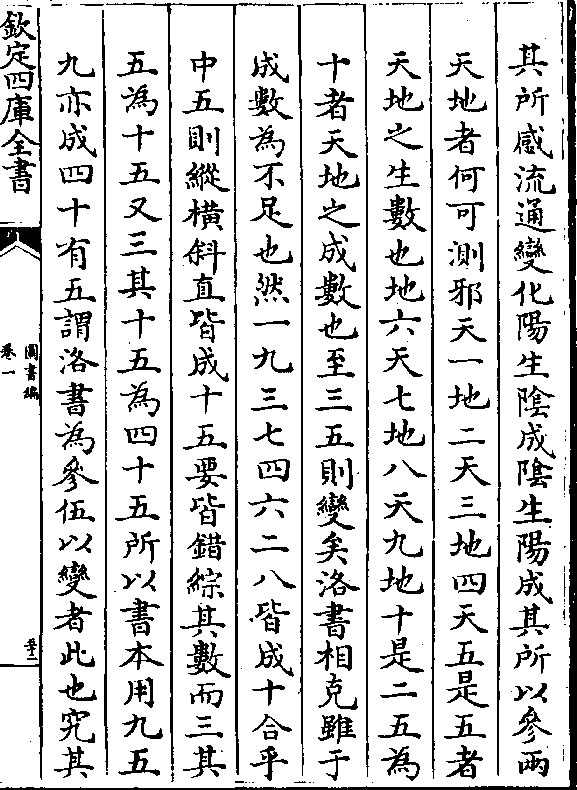 其所感流通變化陽生陰成陰生陽成其所以參兩
天地者何可測邪天一地二天三地四天五是五者
天地之生數也地六天七地八天九地十是二五為
十者天地之成數也至三五則變矣洛書相克雖于
成數為不足也然一九三七四六二八皆成十合乎
中五則縱橫斜直皆成十五要皆錯綜其數而三其
五為十五又三其十五為四十五所以書本用九五
九亦成四十有五謂洛書為參伍以變者此也究其
欽定四庫全書
圖書編
卷一